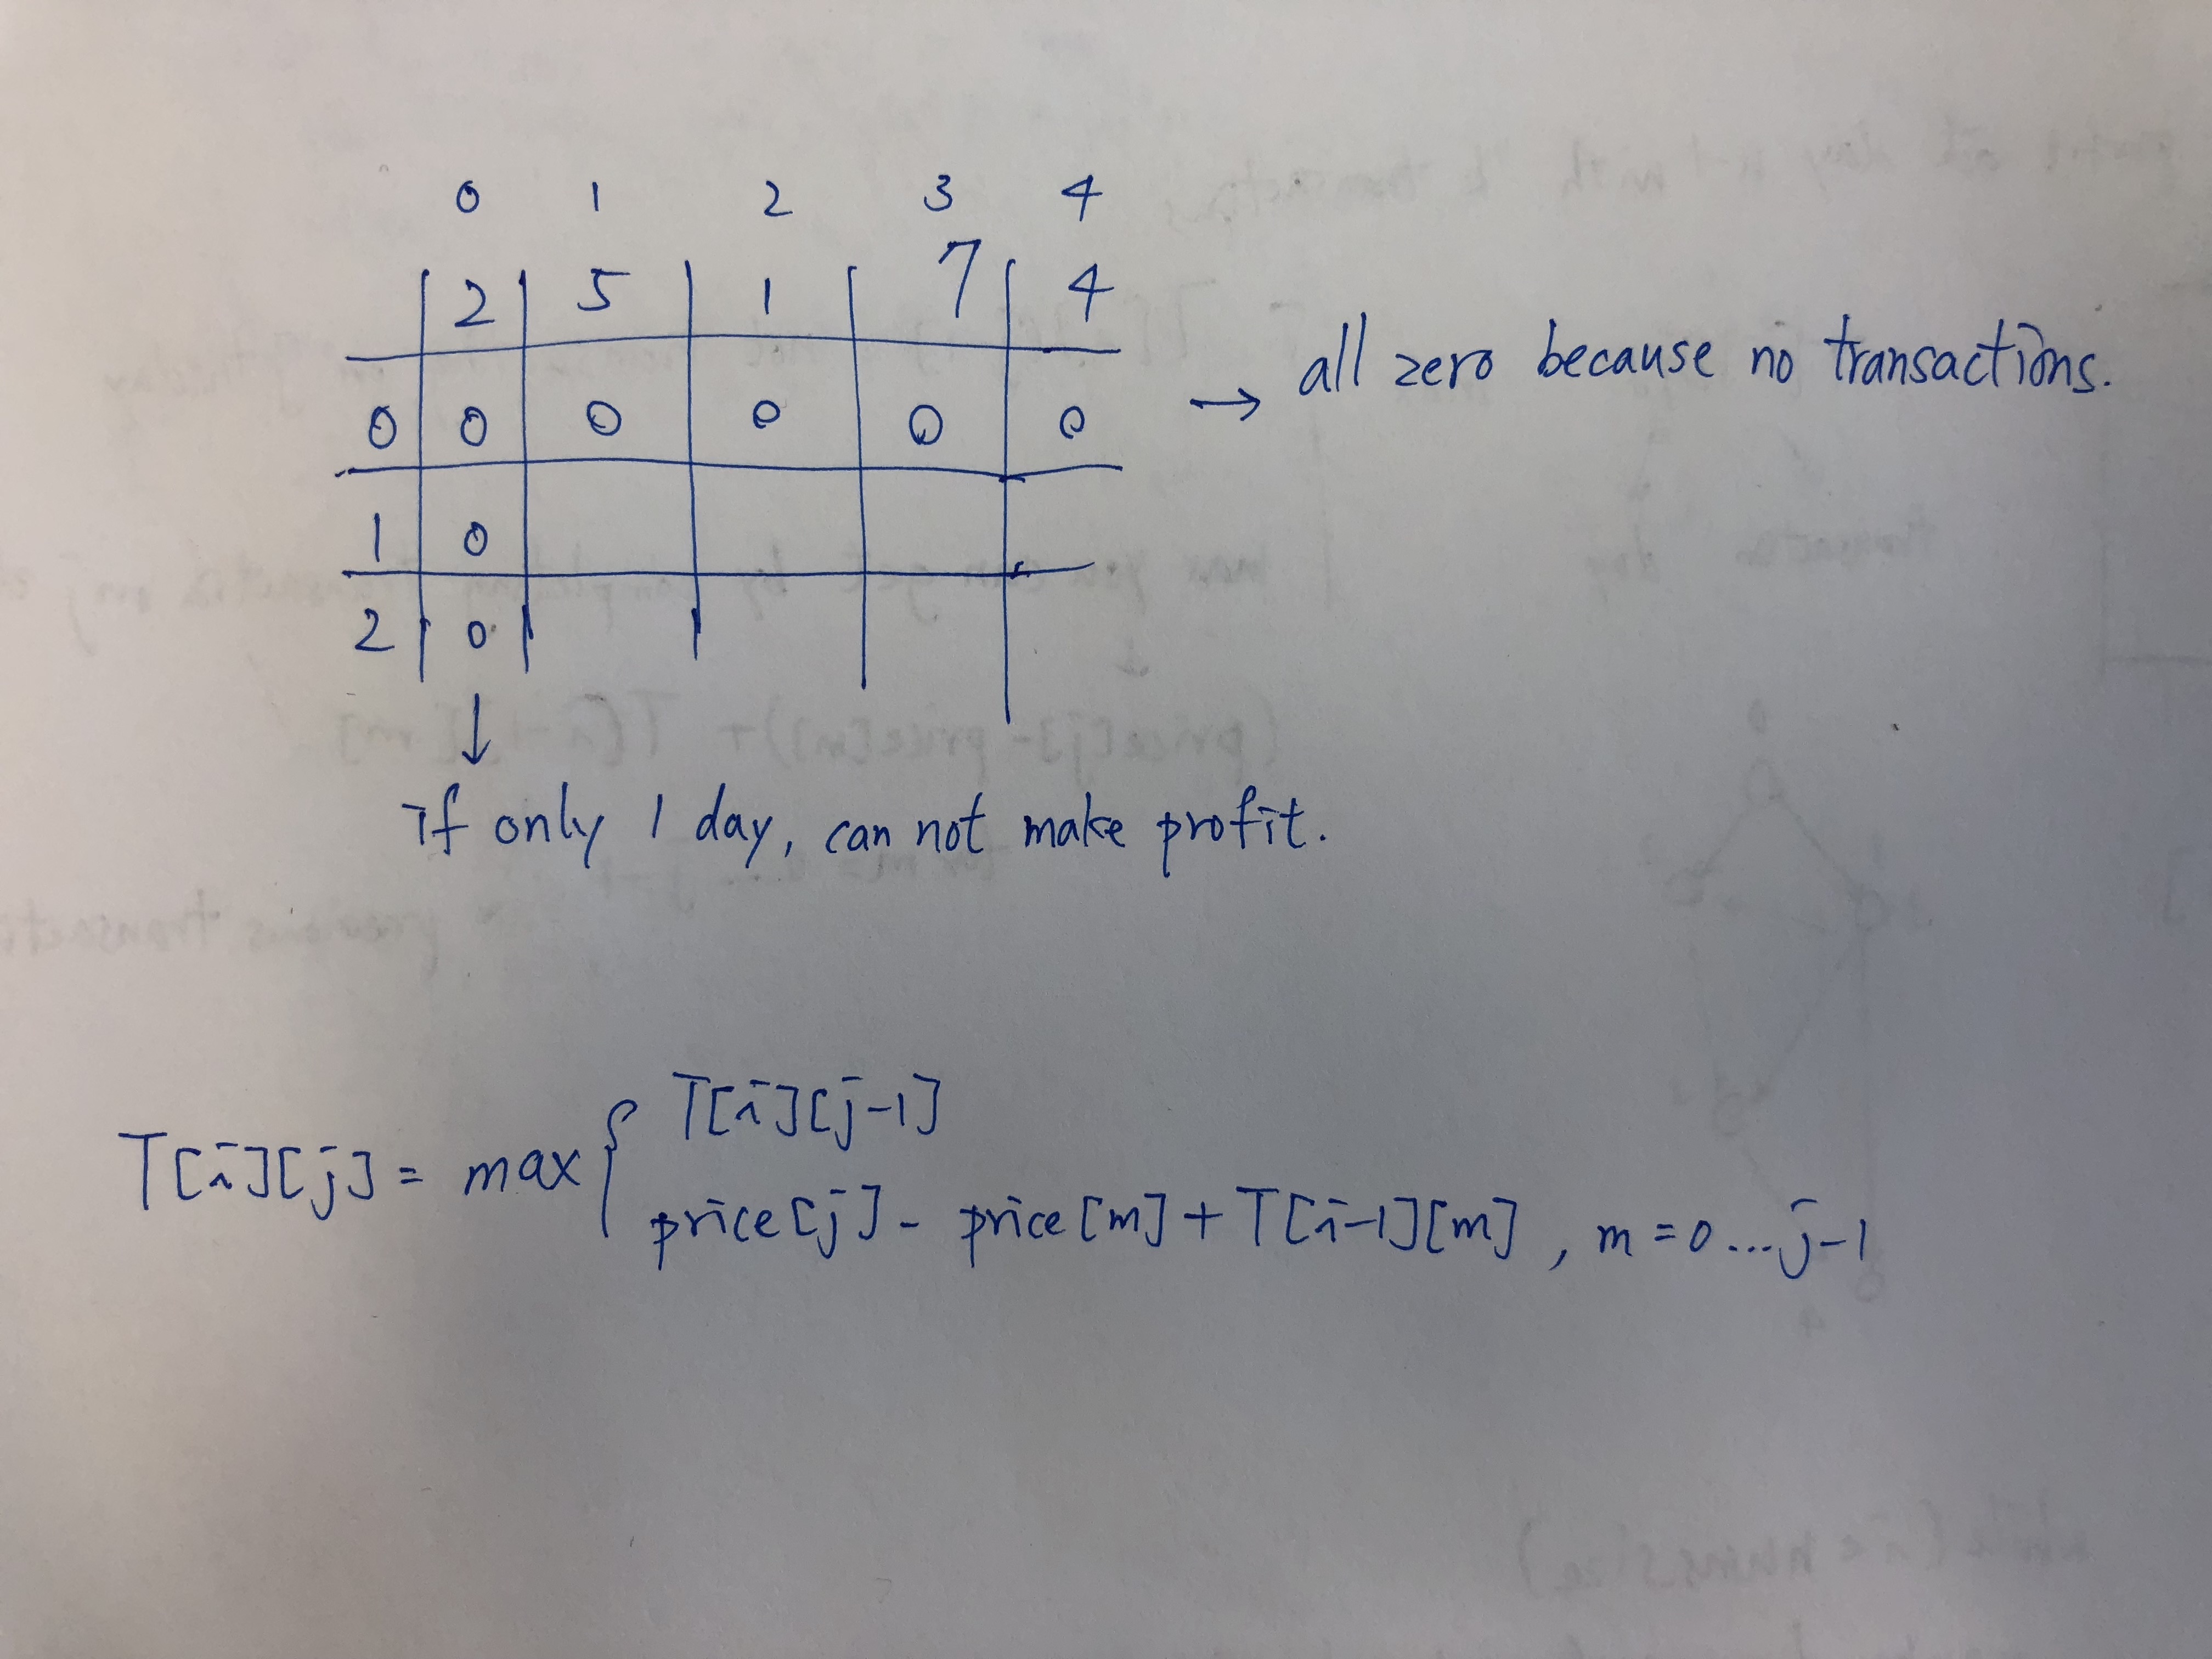 0 1 2 3 4
2 5 1 7 4
0 0 0 0 0 0 → all zero because no transactions.
1 0
2 0
↓
if only 1 day, can not make profit.
T[i][j] = max { T[i][j-1]
price[j] - price[m] + T[i-1][m] , m = 0 ... j-1